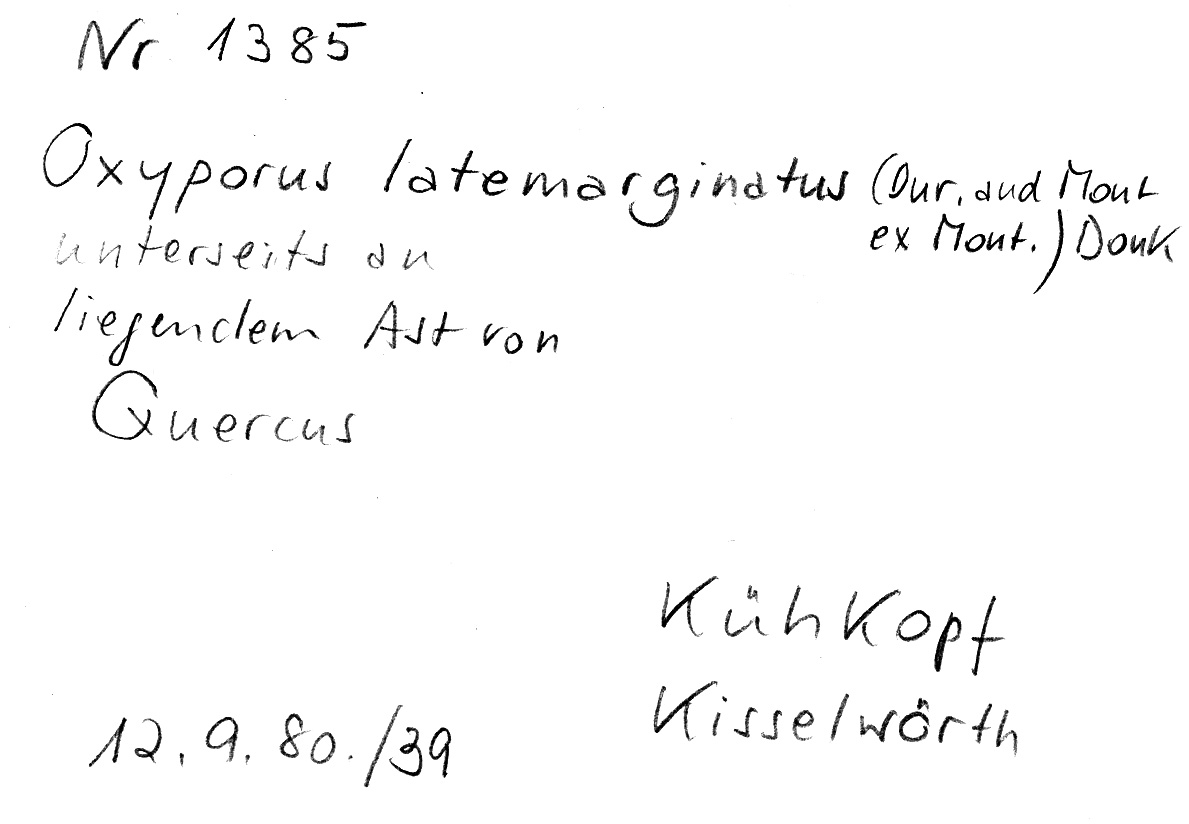 Nr 1385
Oxyporus latemarginatus (Dur. and Mont
ex Mont.) Donk
unterseits an
liegendem Ast von
Quercus
Kühkopf
Kisselwörth
12.9.80./39